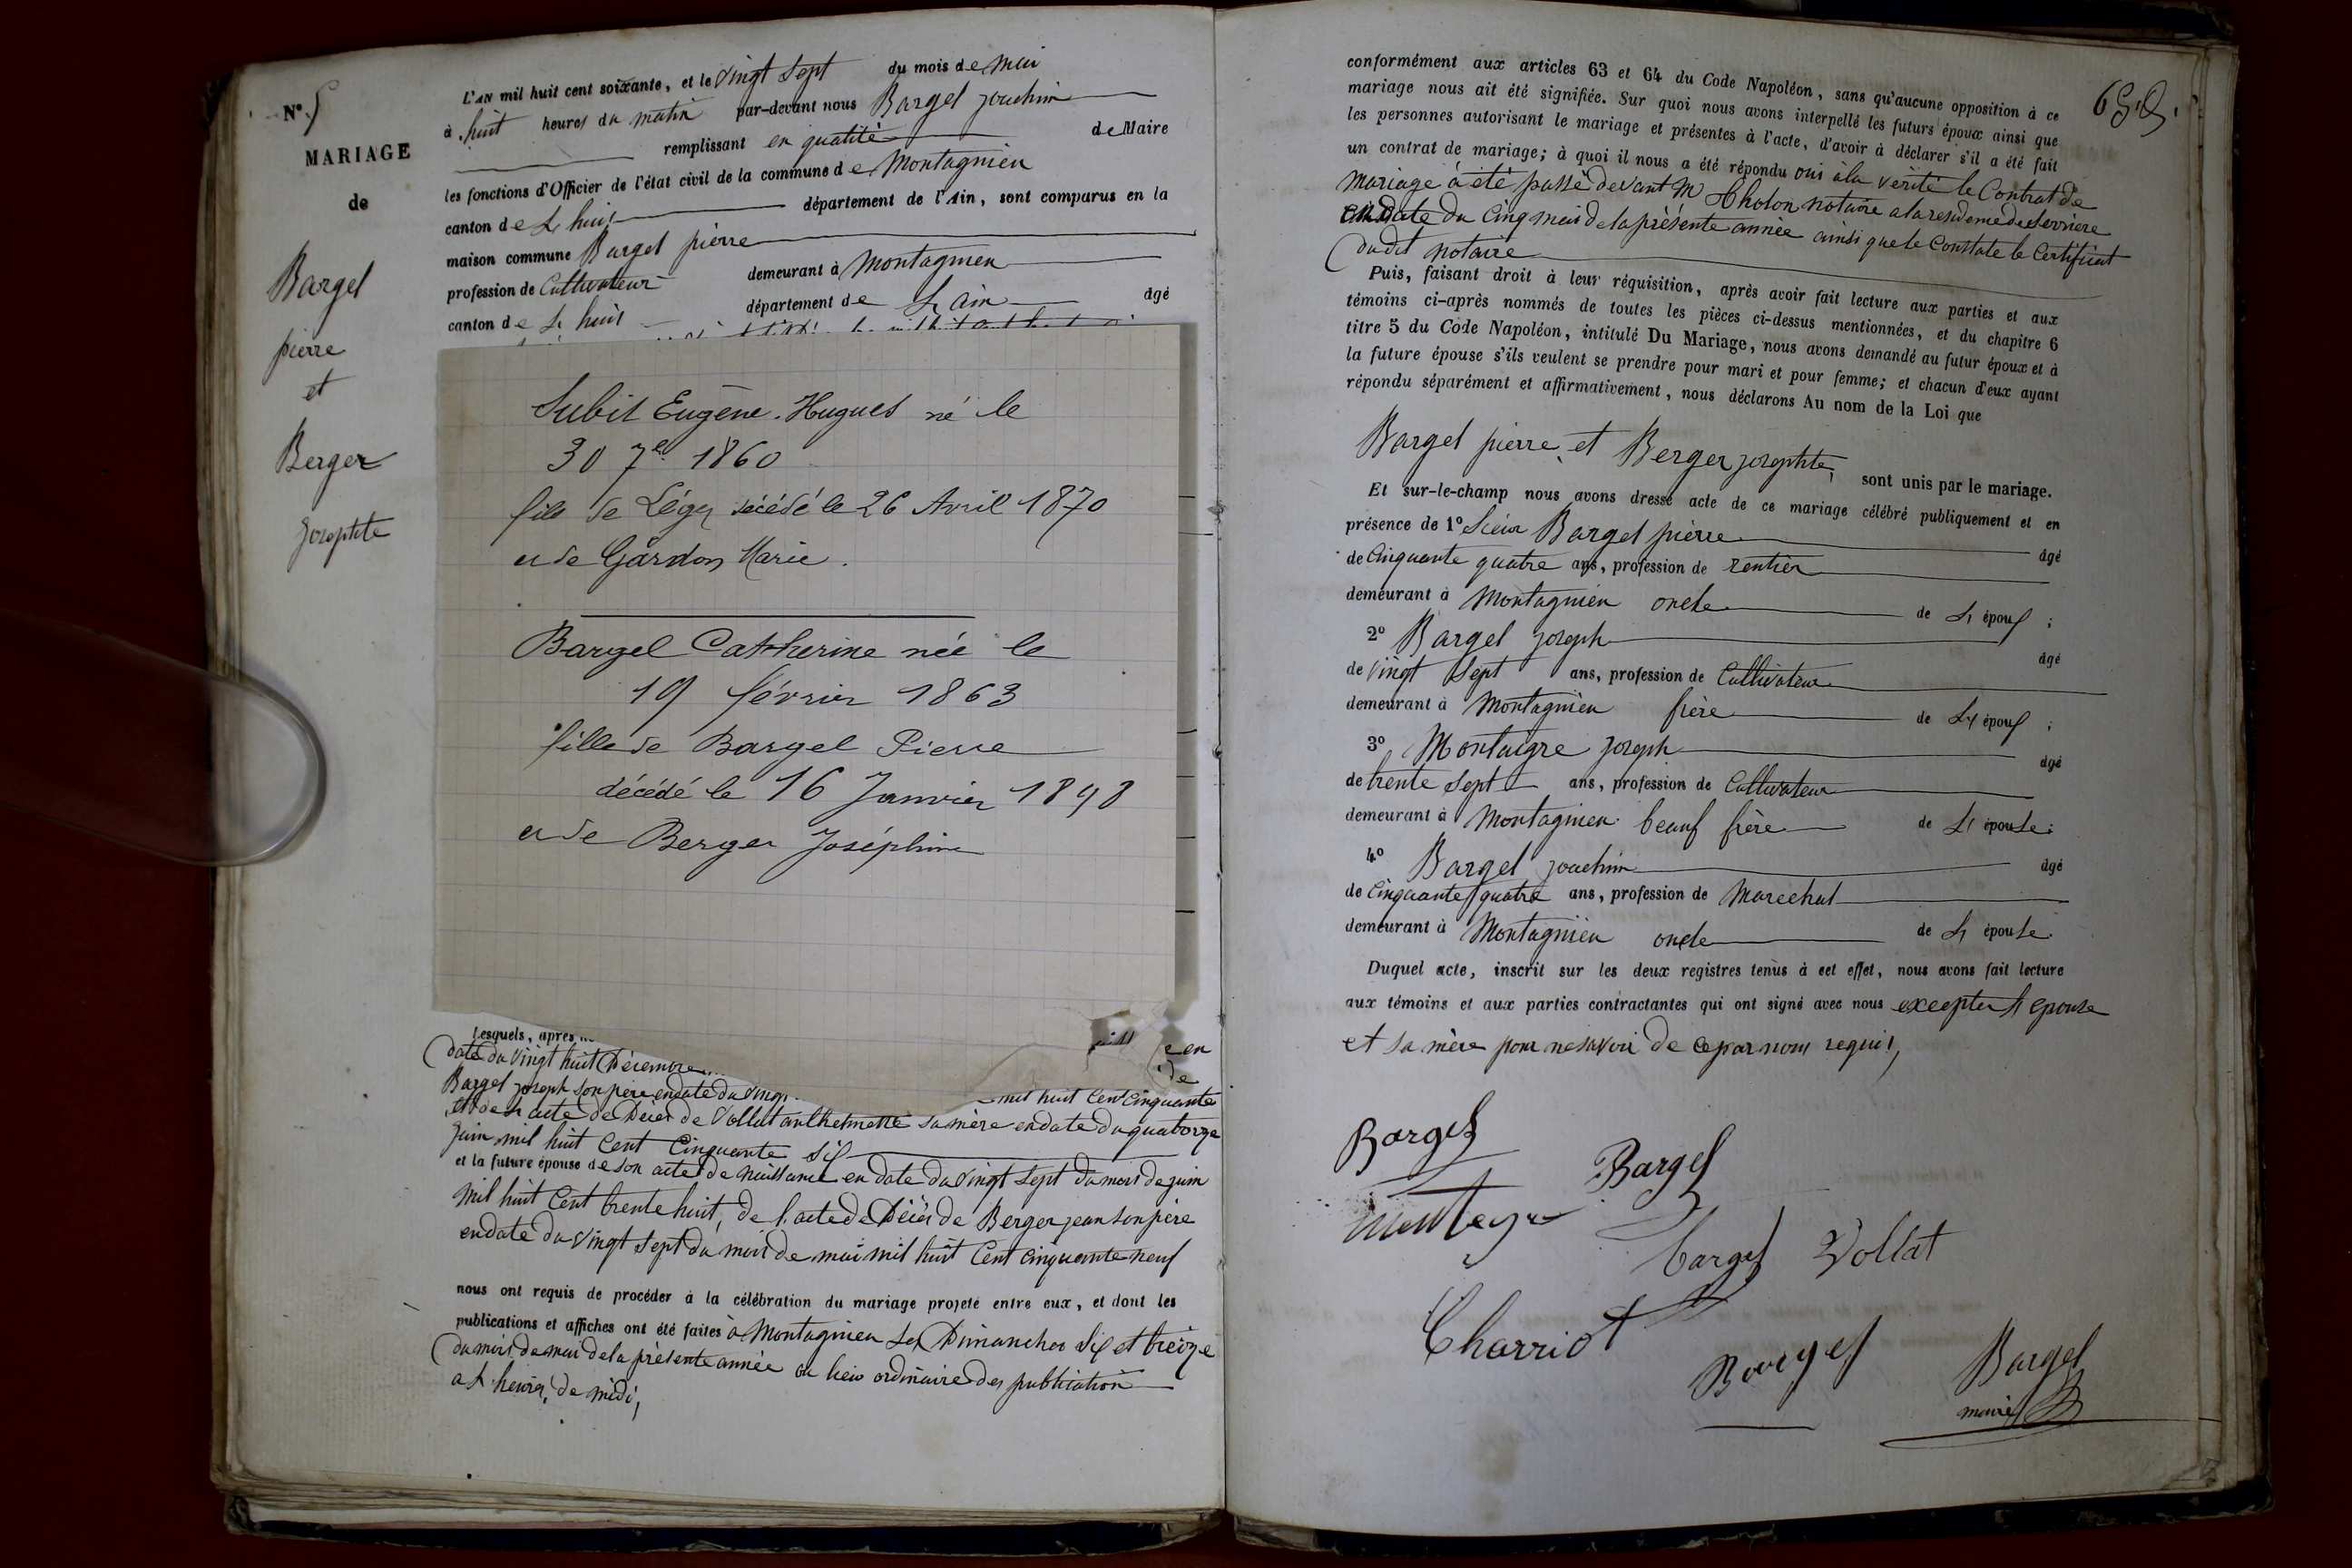 N° 5
MARIAGE
de
Bargel
pierre
et
Berger
Josephte
L'AN mil huit cent soixante, et le vingt sept du mois de mai
à huit heures du matin par-devant nous Bargel jouchim
remplissant en qualité de Maire
les fonctions d'Officier de l'état civil de la commune de Montagnieu
canton de L huis département de l'Ain, sont comparus en la
maison commune Bargel pierre
profession de Cultivateur demeurant à Montagnieu
canton de L huis département de L ain âgé
Subit Eugène. Hugues né le
30 7e 1860
fils de Léger décédé le 26 Avril 1870
et de Gardon Marie.
Bargel Catherine née le
19 février 1863
fille de Bargel Pierre
décédé le 16 Janvier 1898
et de Berger Joséphine
Lesquels, après
date du vingt huit Décembre
Bargel joseph son père en date du vingt mil huit Cent Cinquante
et de l'acte de Décès de Vollat anthelmette sa mère en date du quatorze
Juin mil huit Cent Cinquante six
et la future épouse de son acte de naissance en date du vingt sept du mois de juin
mil huit Cent trente huit, de l'acte de Décès de Berger jean son père
en date du vingt sept du mois de mai mil huit Cent cinquante neuf
nous ont requis de procéder à la célébration du mariage projeté entre eux, et dont les
publications et affiches ont été faites à Montagnieu Les Dimanches six et treize
du mois de mai de la présente année au lieu ordinaire des publication
a L heure, de midi,
conformément aux articles 63 et 64 du Code Napoléon, sans qu'aucune opposition à ce
mariage nous ait été signifiée. Sur quoi nous avons interpellé les futurs époux ainsi que
les personnes autorisant le mariage et présentes à l'acte, d'avoir à déclarer s'il a été fait
un contrat de mariage; à quoi il nous a été répondu oui à la vérité le Contrat de
mariage à été passé devant M Cholon notaire a la residence de Serrière
en date du Cinq mai de la présente année ainsi que le Constate le Certificat
dudit notaire
Puis, faisant droit à leur réquisition, après avoir fait lecture aux parties et aux
témoins ci-après nommés de toutes les pièces ci-dessus mentionnées, et du chapitre 6
titre 5 du Code Napoléon, intitulé Du Mariage, nous avons demandé au futur époux et à
la future épouse s'ils veulent se prendre pour mari et pour femme; et chacun d'eux ayant
répondu séparément et affirmativement, nous déclarons Au nom de la Loi que
Bargel pierre et Berger josephte, sont unis par le mariage.
Et sur-le-champ nous avons dressé acte de ce mariage célébré publiquement et en
présence de 1° Sieur Bargel pierre âgé
de Cinquante quatre ans, profession de rentier
demeurant à Montagnieu oncle de L époux ;
2° Bargel joseph âgé
de vingt sept ans, profession de Cultivateur
demeurant à Montagnieu frère de L époux ;
3° Montaigre joseph âgé
de trente sept ans, profession de Cultivateur
demeurant à Montagnieu beauf frère de L épouse ;
4° Bargel jouchim âgé
de Cinquante quatre ans, profession de Marechal
demeurant à Montagnieu oncle de L épouse
Duquel acte, inscrit sur les deux registres tenus à cet effet, nous avons fait lecture
aux témoins et aux parties contractantes qui ont signé avec nous excepter L epouse
et sa mère pour ne savoir de ce par nous requis,
Bargel
Bargel
Bargel Vollat
Charriot
Bargel
Bargel
maire